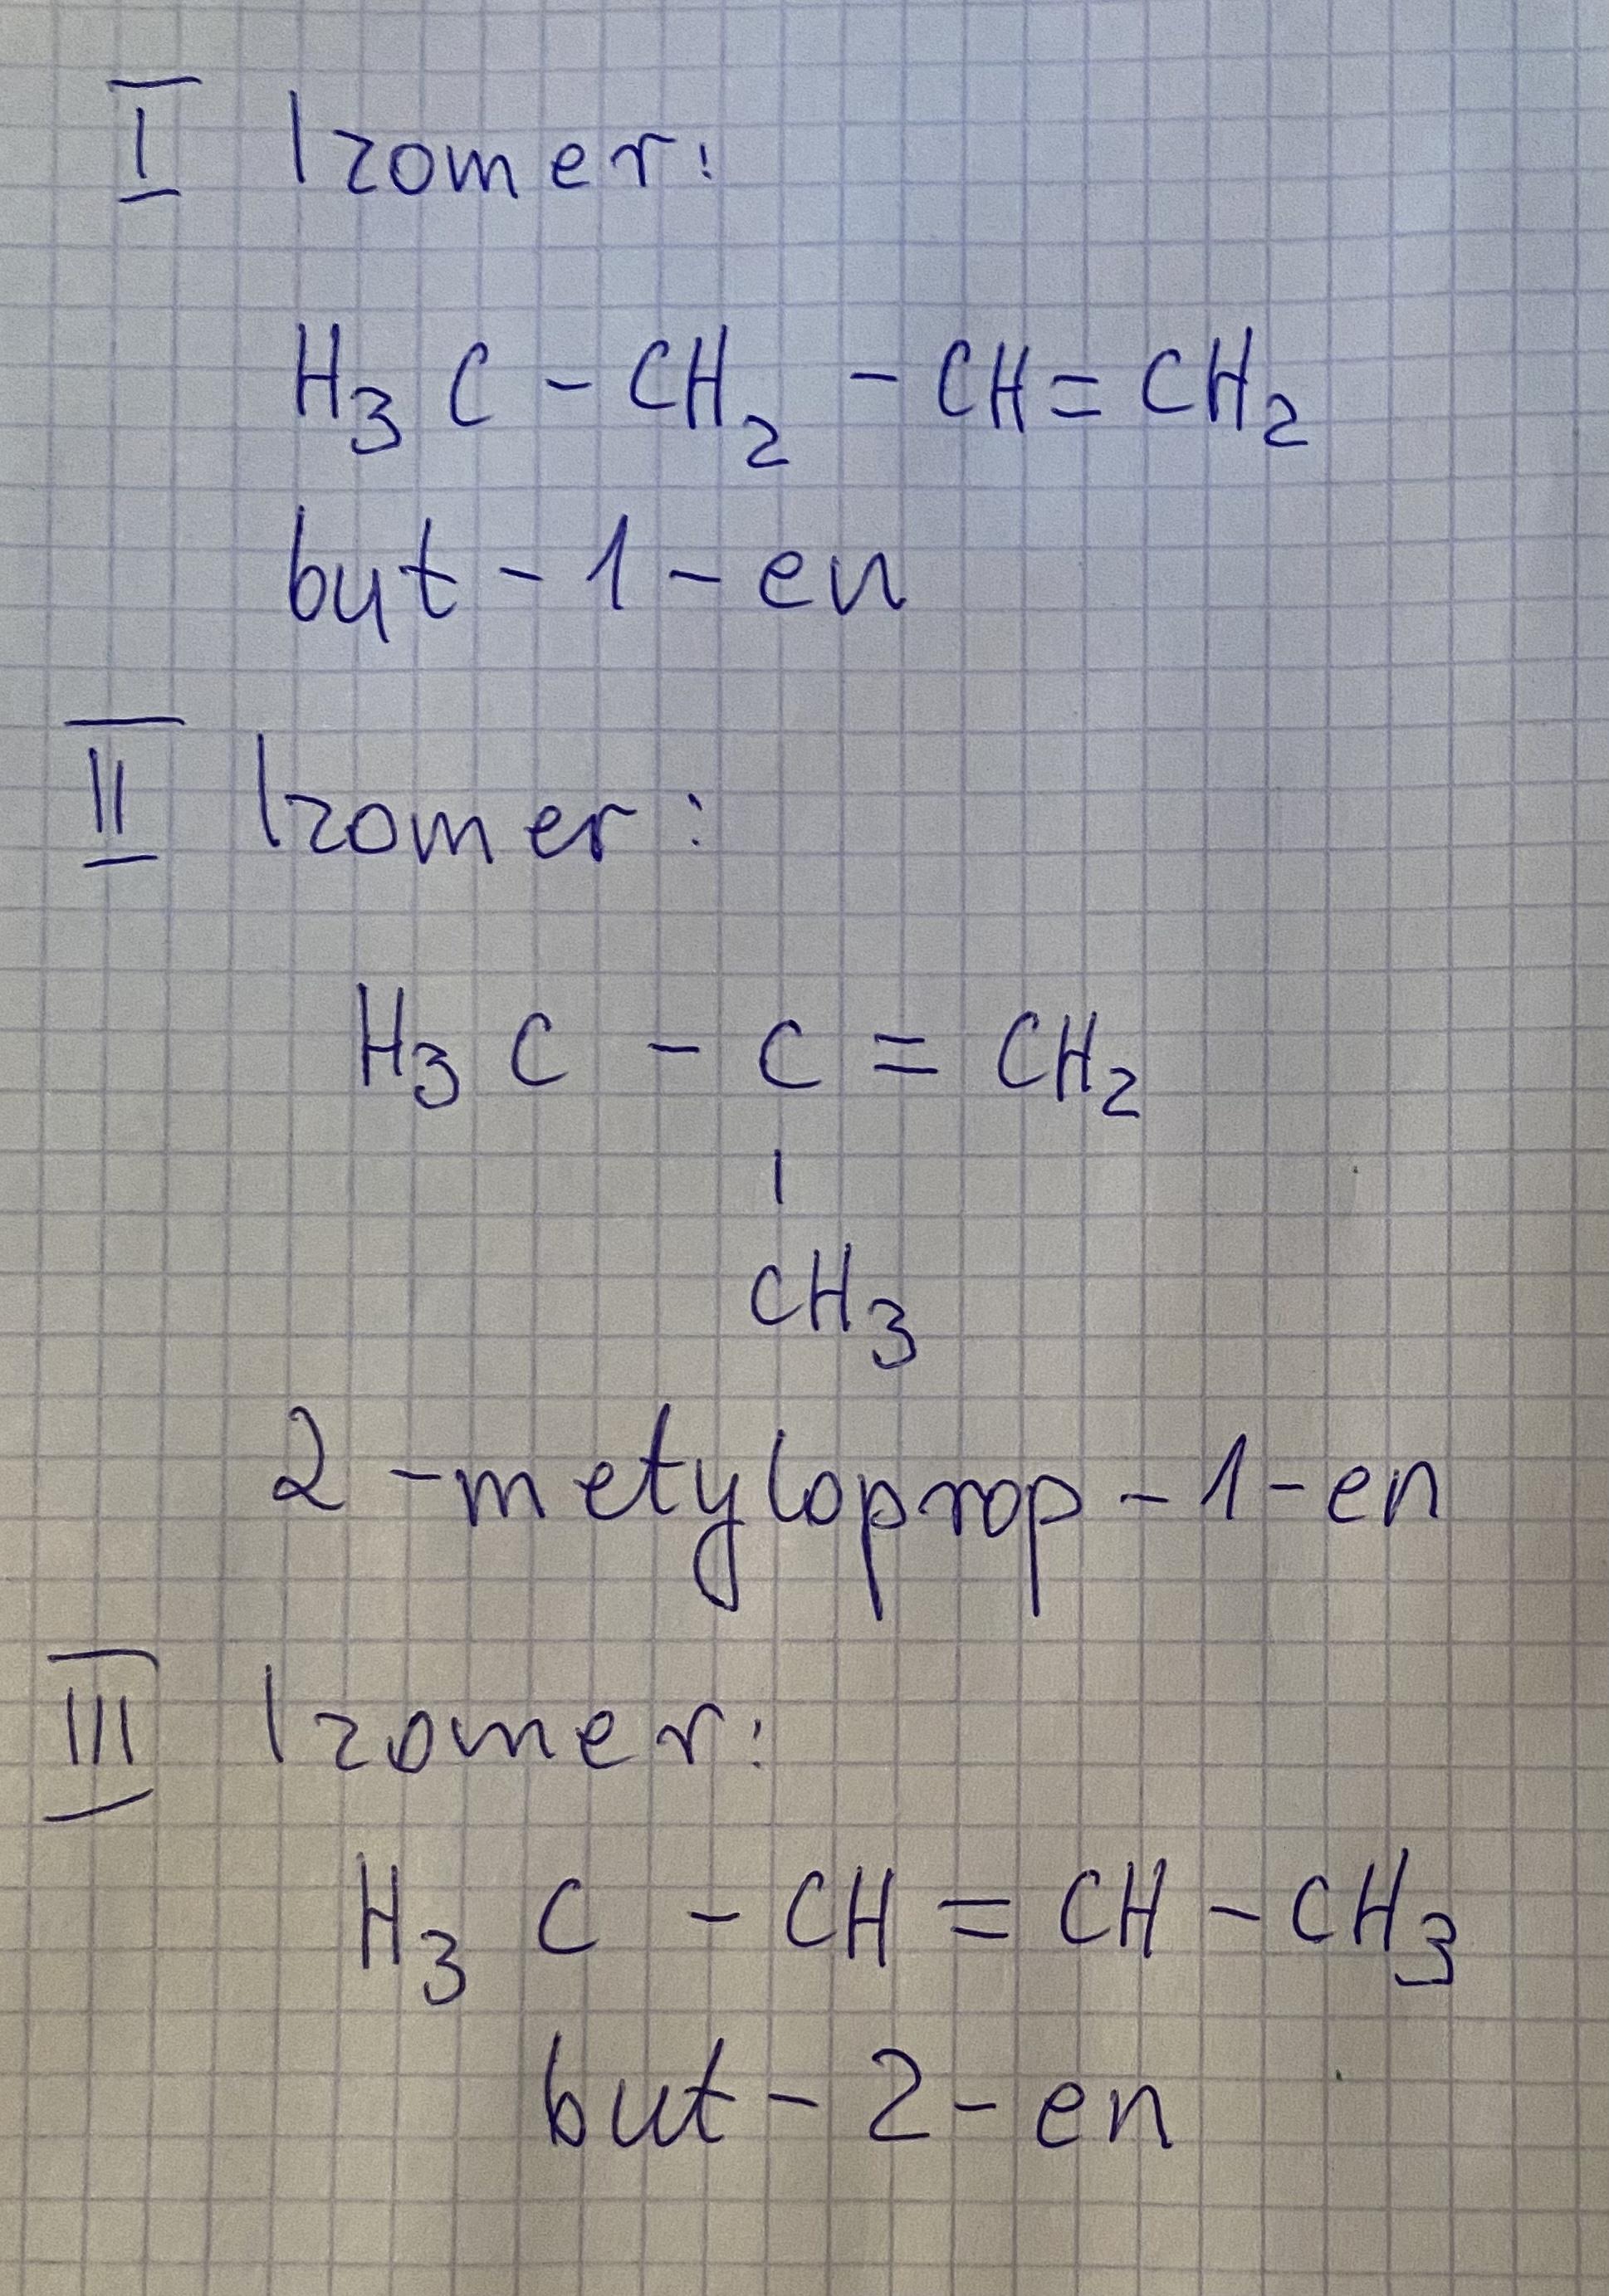 I Izomer:
H₃C - CH₂ - CH = CH₂
but - 1 - en
II Izomer:
H₃C - C = CH₂
|
CH₃
2 - metyloprop - 1 - en
III Izomer:
H₃C - CH = CH - CH₃
but - 2 - en